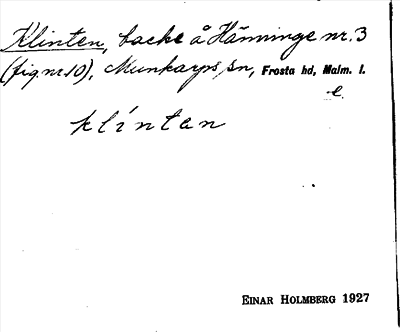 Klinten, backe å Hänninge nr. 3
(fig nr 10), Munkarps sn, Frosta hd, Malm. l.
e.
klíntan
EINAR HOLMBERG 1927